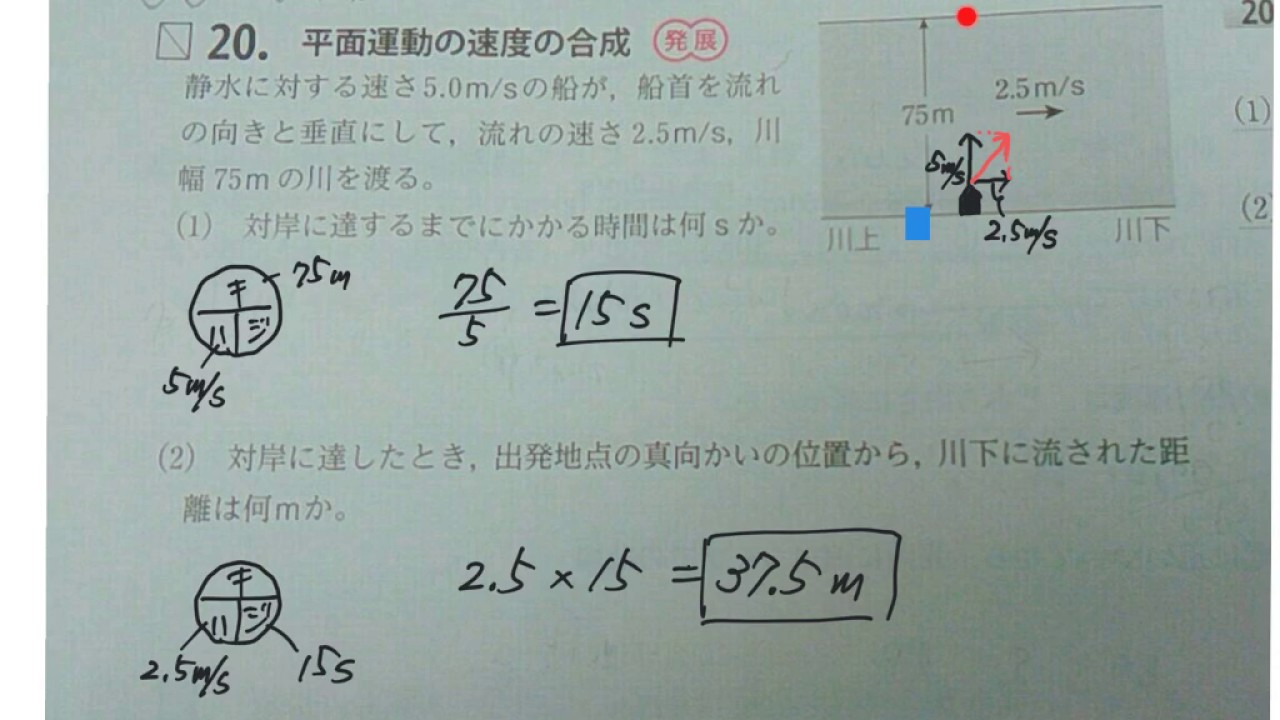 20. 平面運動の速度の合成 発展
静水に対する速さ5.0m/sの船が，船首を流れ
の向きと垂直にして，流れの速さ2.5m/s，川
幅75mの川を渡る。
(1) 対岸に達するまでにかかる時間は何sか。
75m
2.5m/s
5m/s
2.5m/s
川上
川下
20
(1)
(2)
キ
ハ
ジ
75m
5m/s
75/5 = 15s
(2) 対岸に達したとき，出発地点の真向かいの位置から，川下に流された距
離は何mか。
キ
ハ
ジ
2.5m/s
15s
2.5×15 = 37.5m